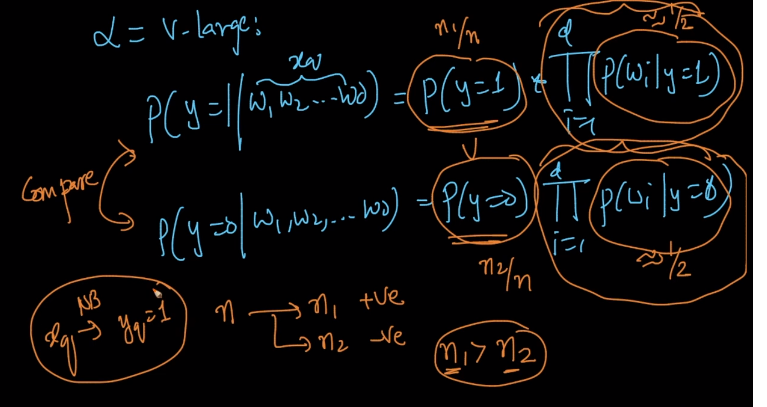 α = v-large:
n1/n
≈ 1/2
xq
P(y=1|w1,w2...wd) = P(y=1) * ∏ d i=1 P(wi|y=1)
Compare
v
P(y=0|w1,w2,...wd) = P(y=0) ∏ d i=1 P(wi|y=0)
n2/n
≈ 1/2
NB
xq → yq=1
n → n1 +ve
→ n2 -ve
n1 > n2